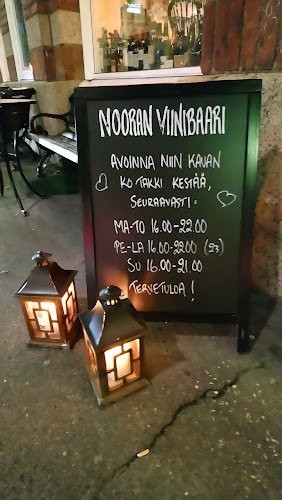 NOORAN VIINIBAARI
AVOINNA NIIN KAUAN
KO TAKKI KESTÄÄ,
SEURAAVASTI:
MA-TO 16.00-22.00
PE-LA 16.00-22.00 (23)
SU 16.00-21.00
TERVETULOA!